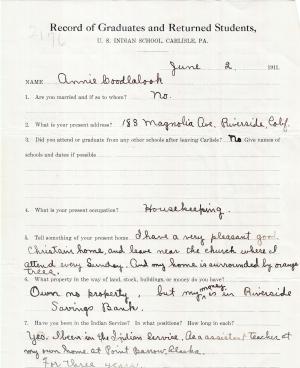 Record of Graduates and Returned Students,
U. S. INDIAN SCHOOL, CARLISLE, PA.
June 2 1911.
NAME Annie Coodlalook
1. Are you married and if so to whom? No.
2. What is your present address? 183 Magnolia Ave. Riverside, Calif.
3. Did you attend or graduate from any other schools after leaving Carlisle? No Give names of
schools and dates if possible
4. What is your present occupation? Housekeeping.
5. Tell something of your present home I have a very pleasant good
Christain home, and leave near the church where I
attend every Sunday. And my home is surrounded by orange
trees.
6. What property in the way of land, stocks, buildings or money do you have?
Own no property, but my money is in Riverside
Savings Bank.
7. Have you been in the Indian Service? In what positions? How long in each?
Yes. I been in the Indian Service. As a assistent teacher at
my own home at Point Barrow, Alaska.
For three years.